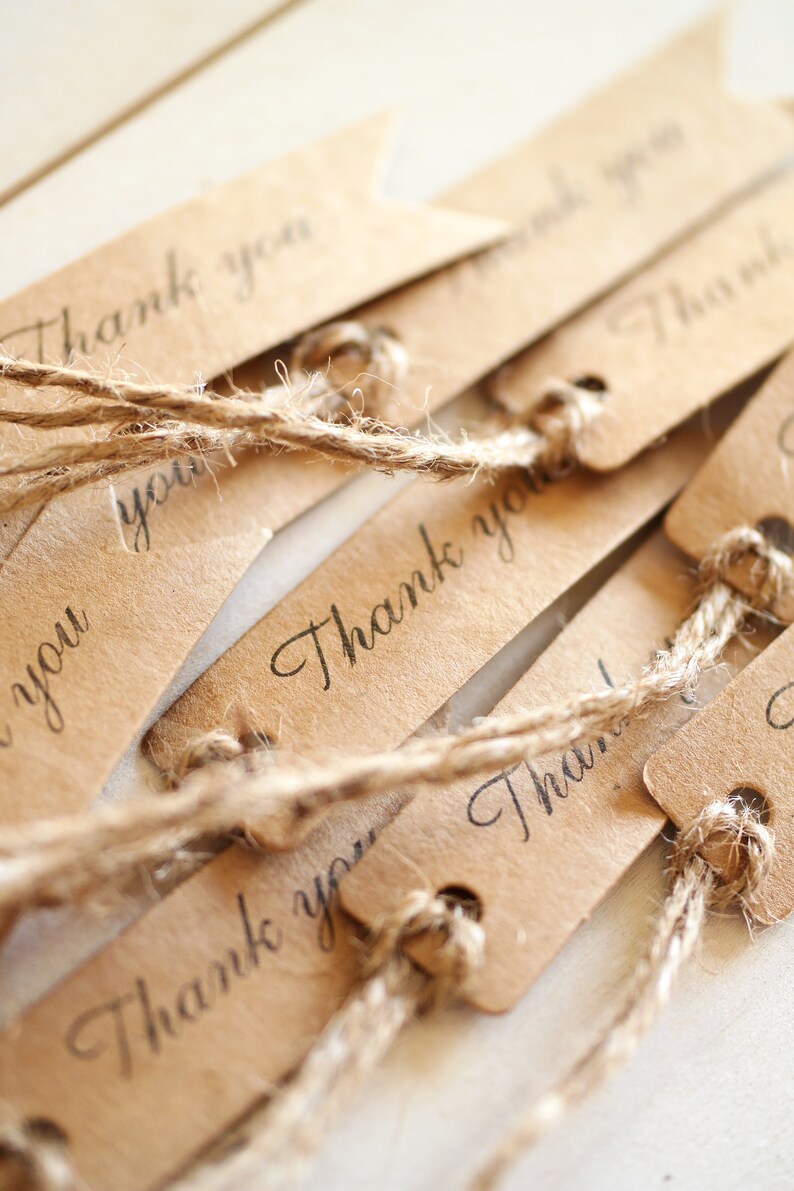 Thank you
Thank you
Thank
you
Thank you
you
Thank
Thank you